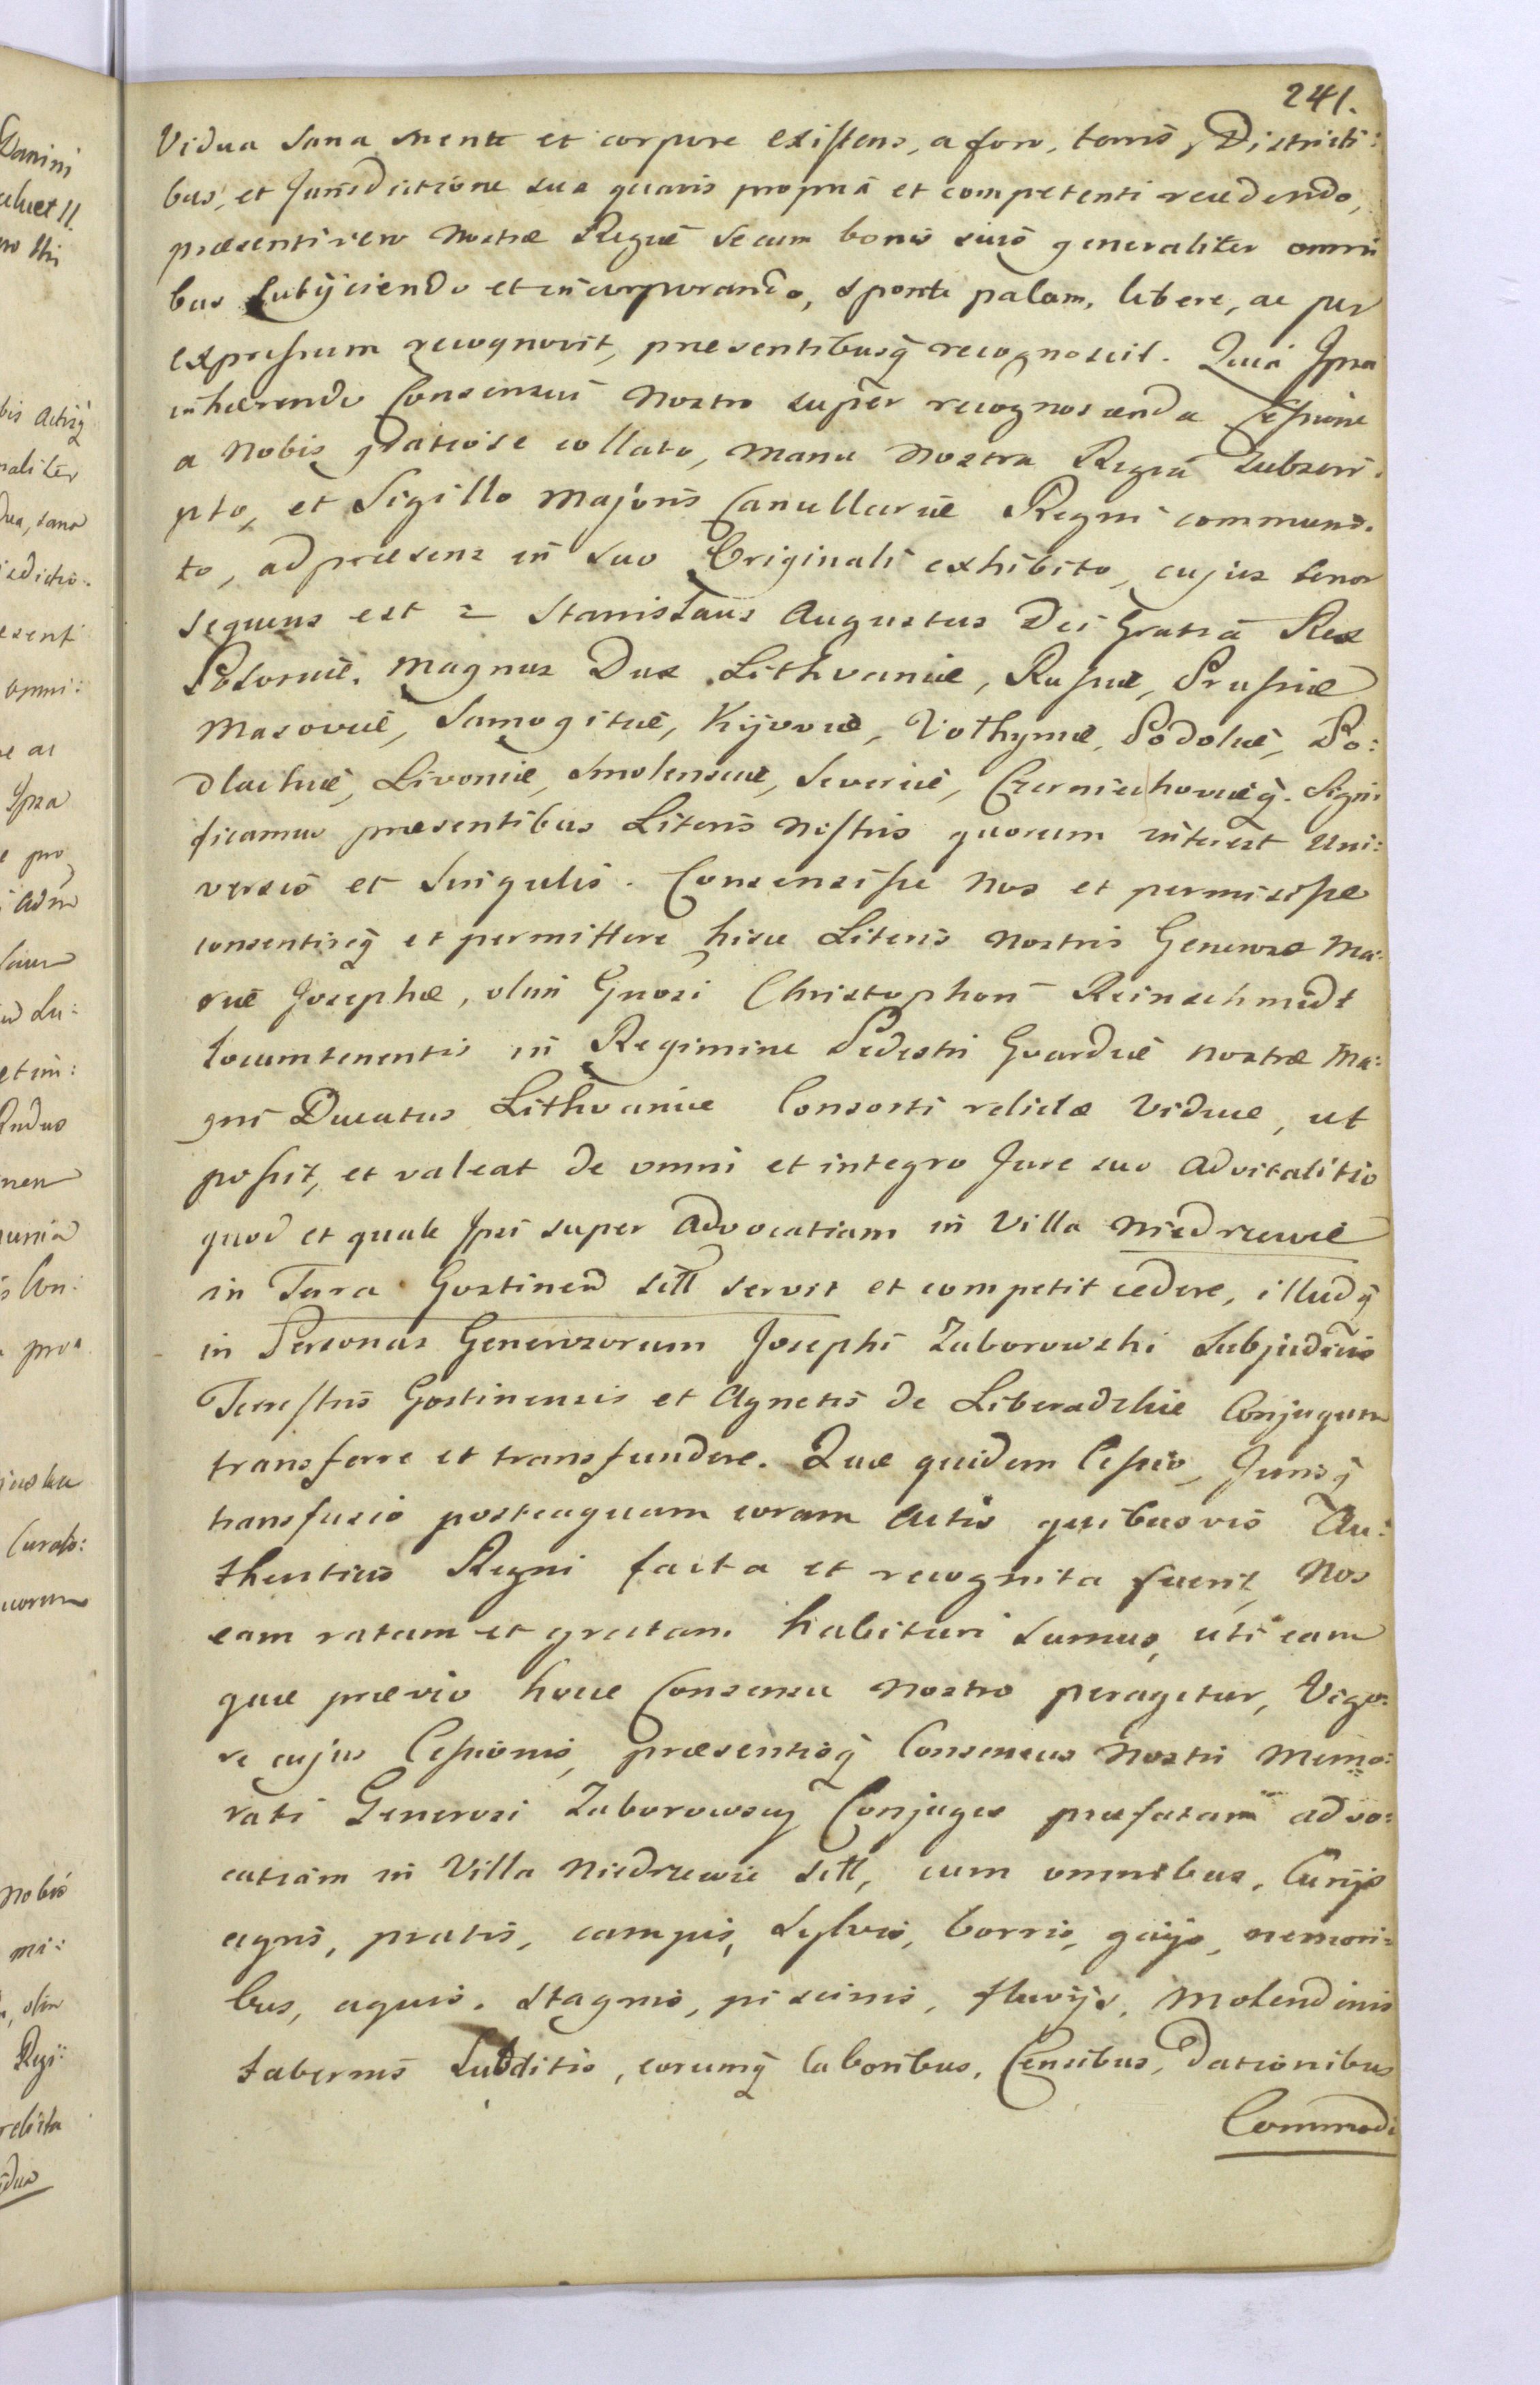 241.
Vidua sana mente et corpore existens, a foro, terris, Districti:
bus, et Jurisdictione sua quavis propriâ et competenti recedendo,
præsenti vero Nostræ Regiæ se cum bonis suis generaliter omni
bus subijciendo et incorporando, sponte palam, libere, ac per
expressum recognovit, præsentibusq̃ recognoscit. Quia Ipsa
inhærendo Consensui Nostro super recognoscenda Cessione
a Nobis gratiose collato, manu Nostra Regiâ subscri:
pto, et Sigillo Majoris Cancellariæ Regni communi:
to, ad præsens in suo Originali exhibito, cujus tenor
sequens est = Stanislaus Augustus Dei Gratiâ Rex
Poloniæ, Magnus Dux Lithvaniæ, Russiæ, Prussiæ
Masoviæ, Samogitiæ, Kijoviæ, Volhyniæ, Podoliæ, Po:
dlachiæ, Livoniæ, Smolensciæ, Severiæ, Czerniechoviæq̃. Signi
ficamus præsentibus Literis Nostris quorum interest Uni:
versis et Singulis. Consensisse Nos et permisisse
consentireq̃ et permittere hisce Literis Nostris Generosæ Ma:
riæ Josephæ, olim Gnosi Christophori Reinschmidt
locumtenentis in Regimine Pedestri Gvardiæ Nostræ Ma:
gni Ducatus Lithvaniæ Consorti relictæ Viduæ, ut
possit, et valeat de omni et integro Jure suo advitalitio
quod et quale Ipsi super Advocatiam in Villa Niedrzewie
in Terra Gostinen sitt servit et competit cedere, illudq̃
in Personas Generosorum Josephi Zaborowski Subjudicis
Terrestris Gostinensis et Agnetis de Liberadzkie Conjugum
transferre et transfundere. Quæ quidem Cessio, Jurisq̃
transfusio posteaquam coram Actis quibusvis Au:
thenticis Regni facta et recognita fuerit, Nos
eam ratam et gratam habituri sumus, uti eam
quæ prævio hocce Consensu Nostro peragetur, Vigo:
re cujus Cessionis, præsentisq̃ Consensus Nostri Memo:
rati Generosi Zaborowscy Conjuges præfatam advo:
catiam in Villa Niedrzewie sitt, cum omnibus, Curijs
agris, pratis, campis, sylvis, borris, gaijs, nemori:
bus, aquis, stagnis, piscinis, fluvijs, Molendinis
tabernis Subditis, eorumq̃ laboribus, Censibus, Dationibus
Commodi